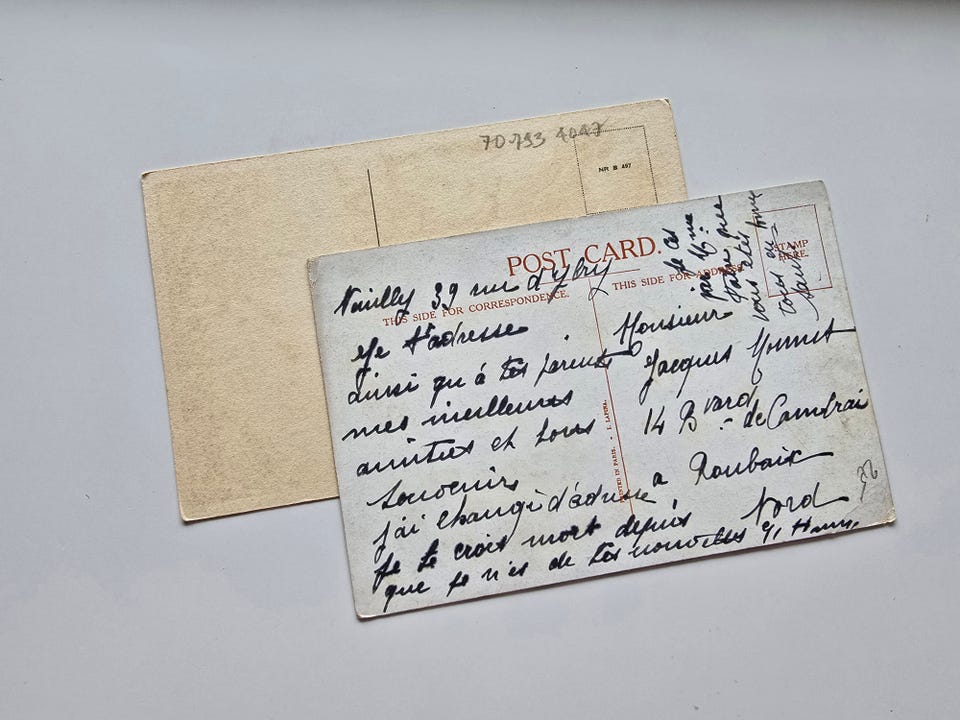 70.793 4047
NR B 497
POST CARD.
THIS SIDE FOR CORRESPONDENCE.
THIS SIDE FOR ADDRESS
STAMP
HERE.
Neuilly 39 rue d'Ybry
Je t'adresse
ainsi qu'à tes parents
mes meilleures
amitiés et bons
souvenirs
j'ai changé d'adresse
je te croit mort depuis
que je n'es de tes nouvelles
Monsieur
Jacques
14 Bvard de Cambrai
à Roubaix
Nord
vous étés
tous en
PRINTED IN PARIS. • I. LAPINA.